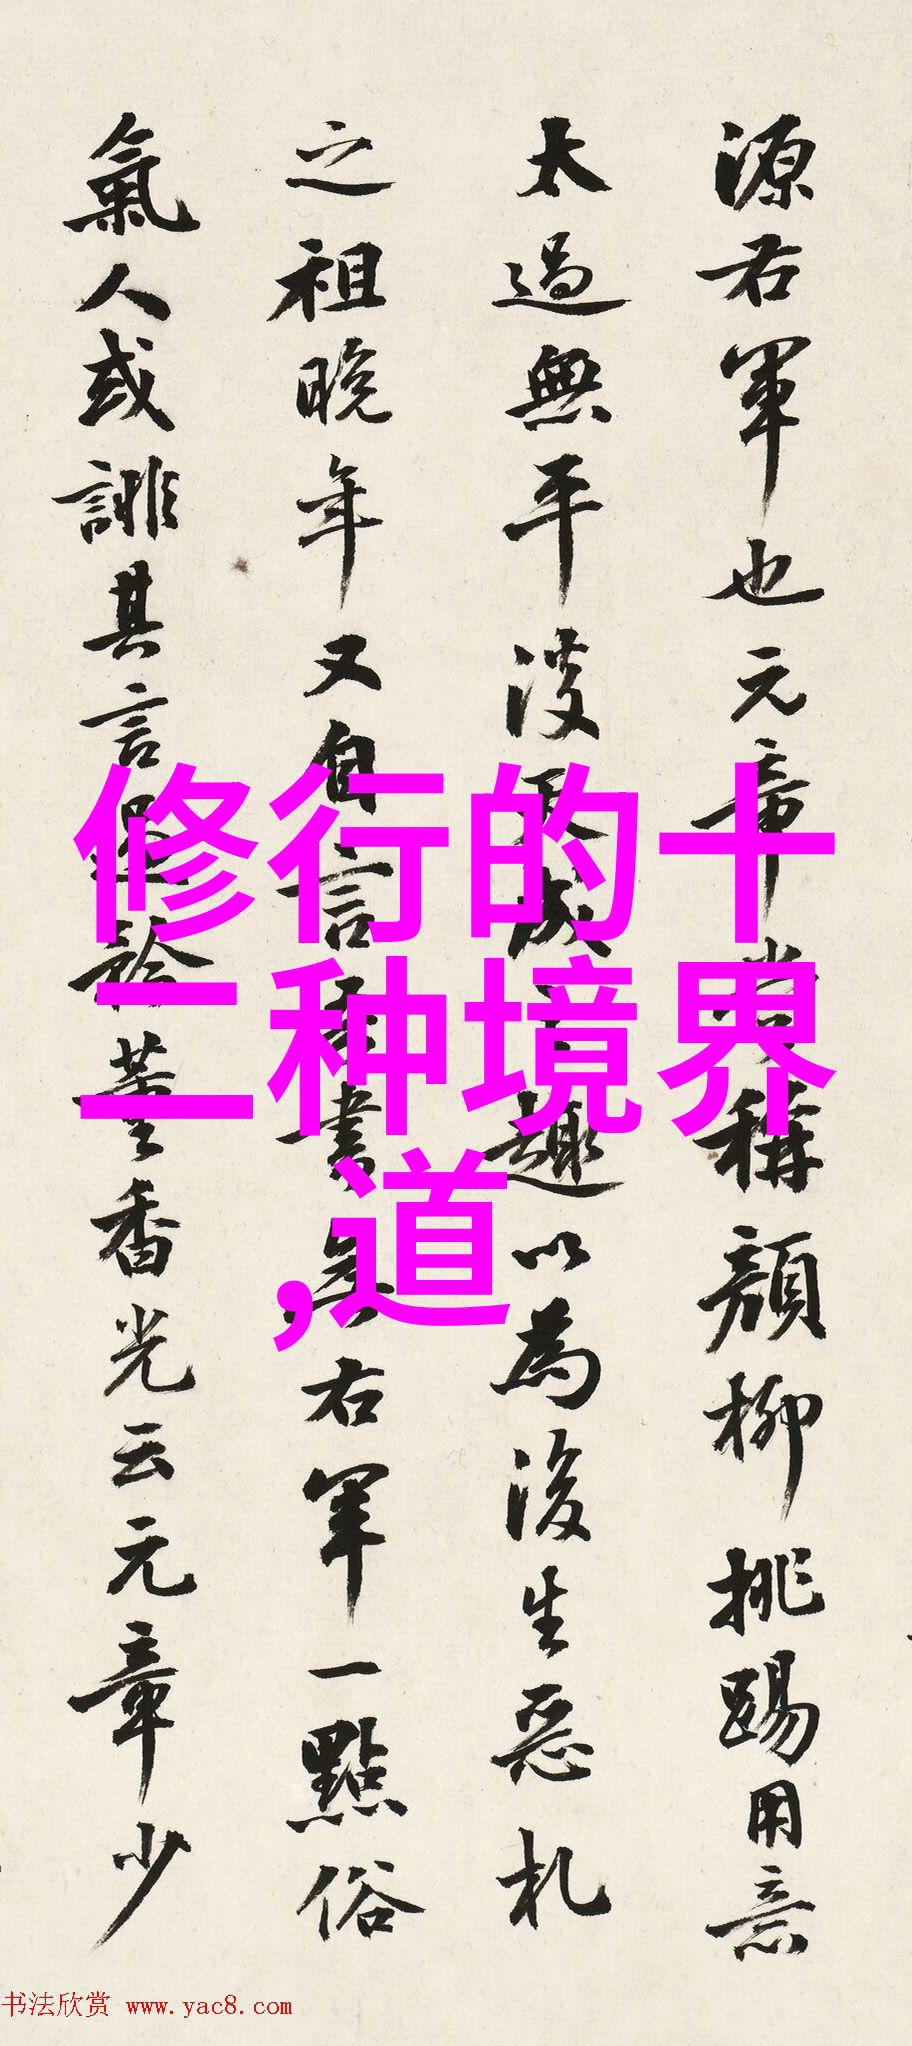 源右軍也元章嘗稱顏柳挑踢用意
太過無平淡天成之趣以為後生惡札
之祖晚年又自言吾書無右軍一點俗
氣人或誹其言過於董香光云元章少
修行的十
二种境界
,道
书法欣赏 www.yac8.com